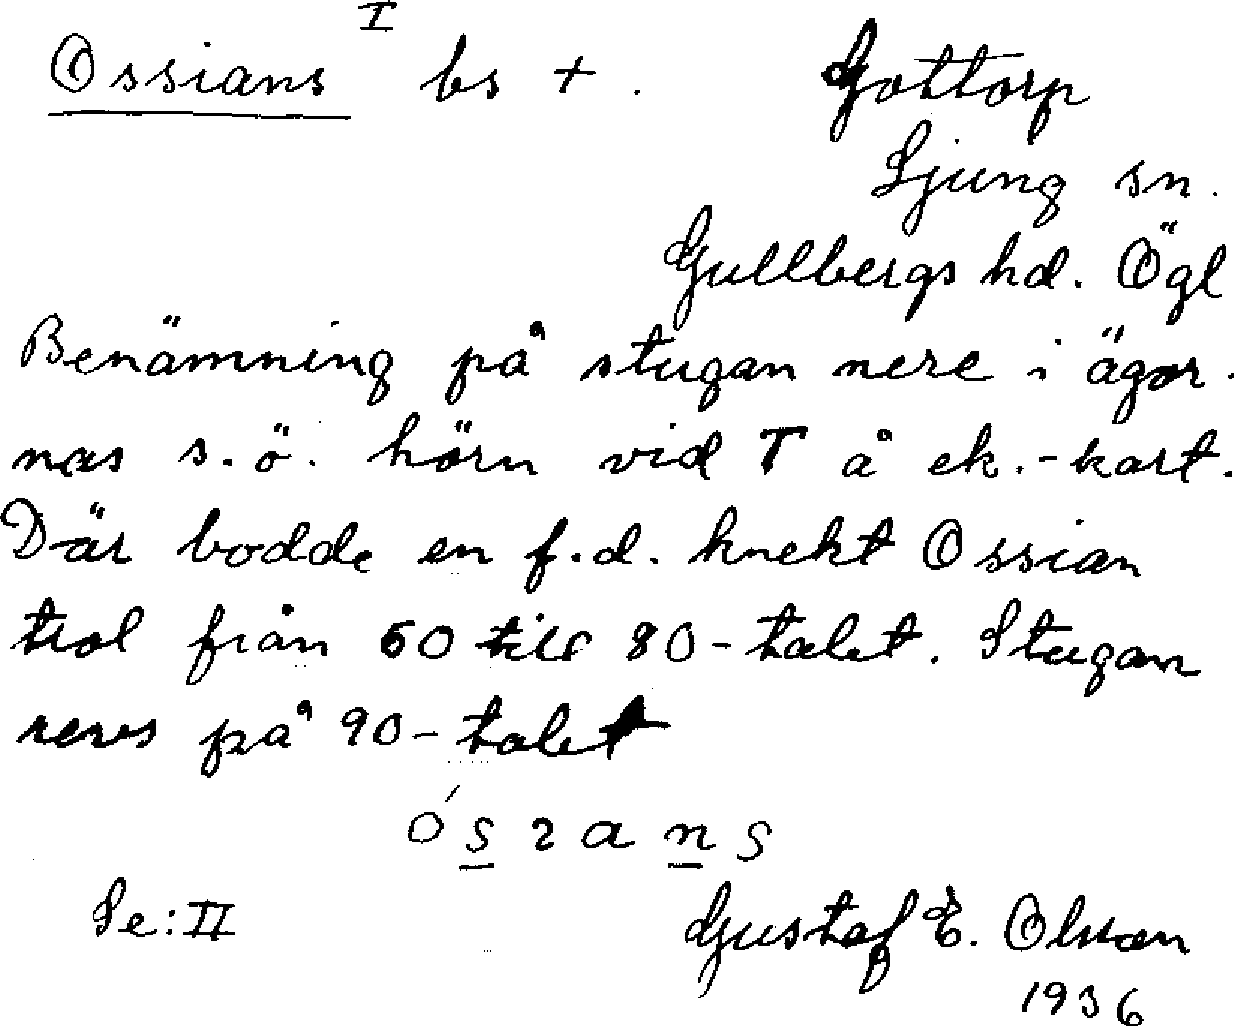 Ossians I bs + . Gottorp
Ljung sn.
Gullbergs hd. Ögl
Benämning på stugan nere i ägor-
nas s.ö. hörn vid T å ek.-kart.
Där bodde en f.d. knekt Ossian
trol från 60 till 80-talet. Stugan
revs på 90-talet
ós ɿ a n s
Se: II Gustaf E. Olsson
1936